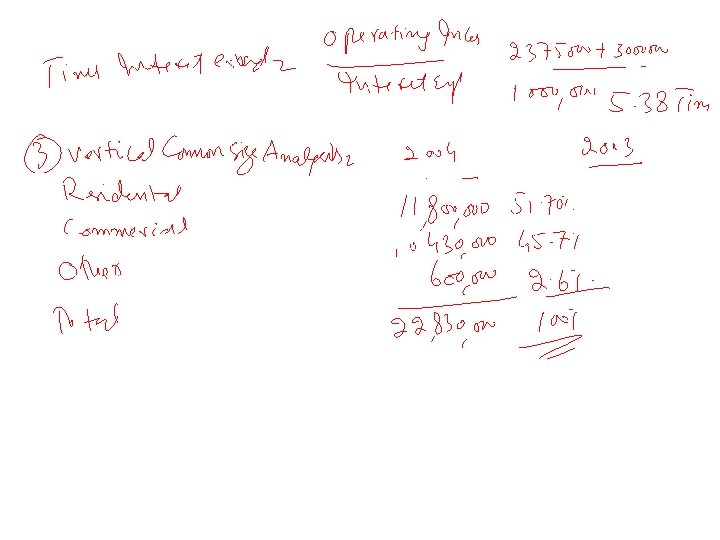 Times Interest earned = Operating Inco / Interest Exp 2375000 + 3000000 / 1000,000 5.38 Tim
(3) Vertical Common Size Analysis = 2004 2003
Residental 11,800,000 51.7%
Commerical 10,430,000 45.7%
Other 600,000 2.6%
Total 22,830,000 100%